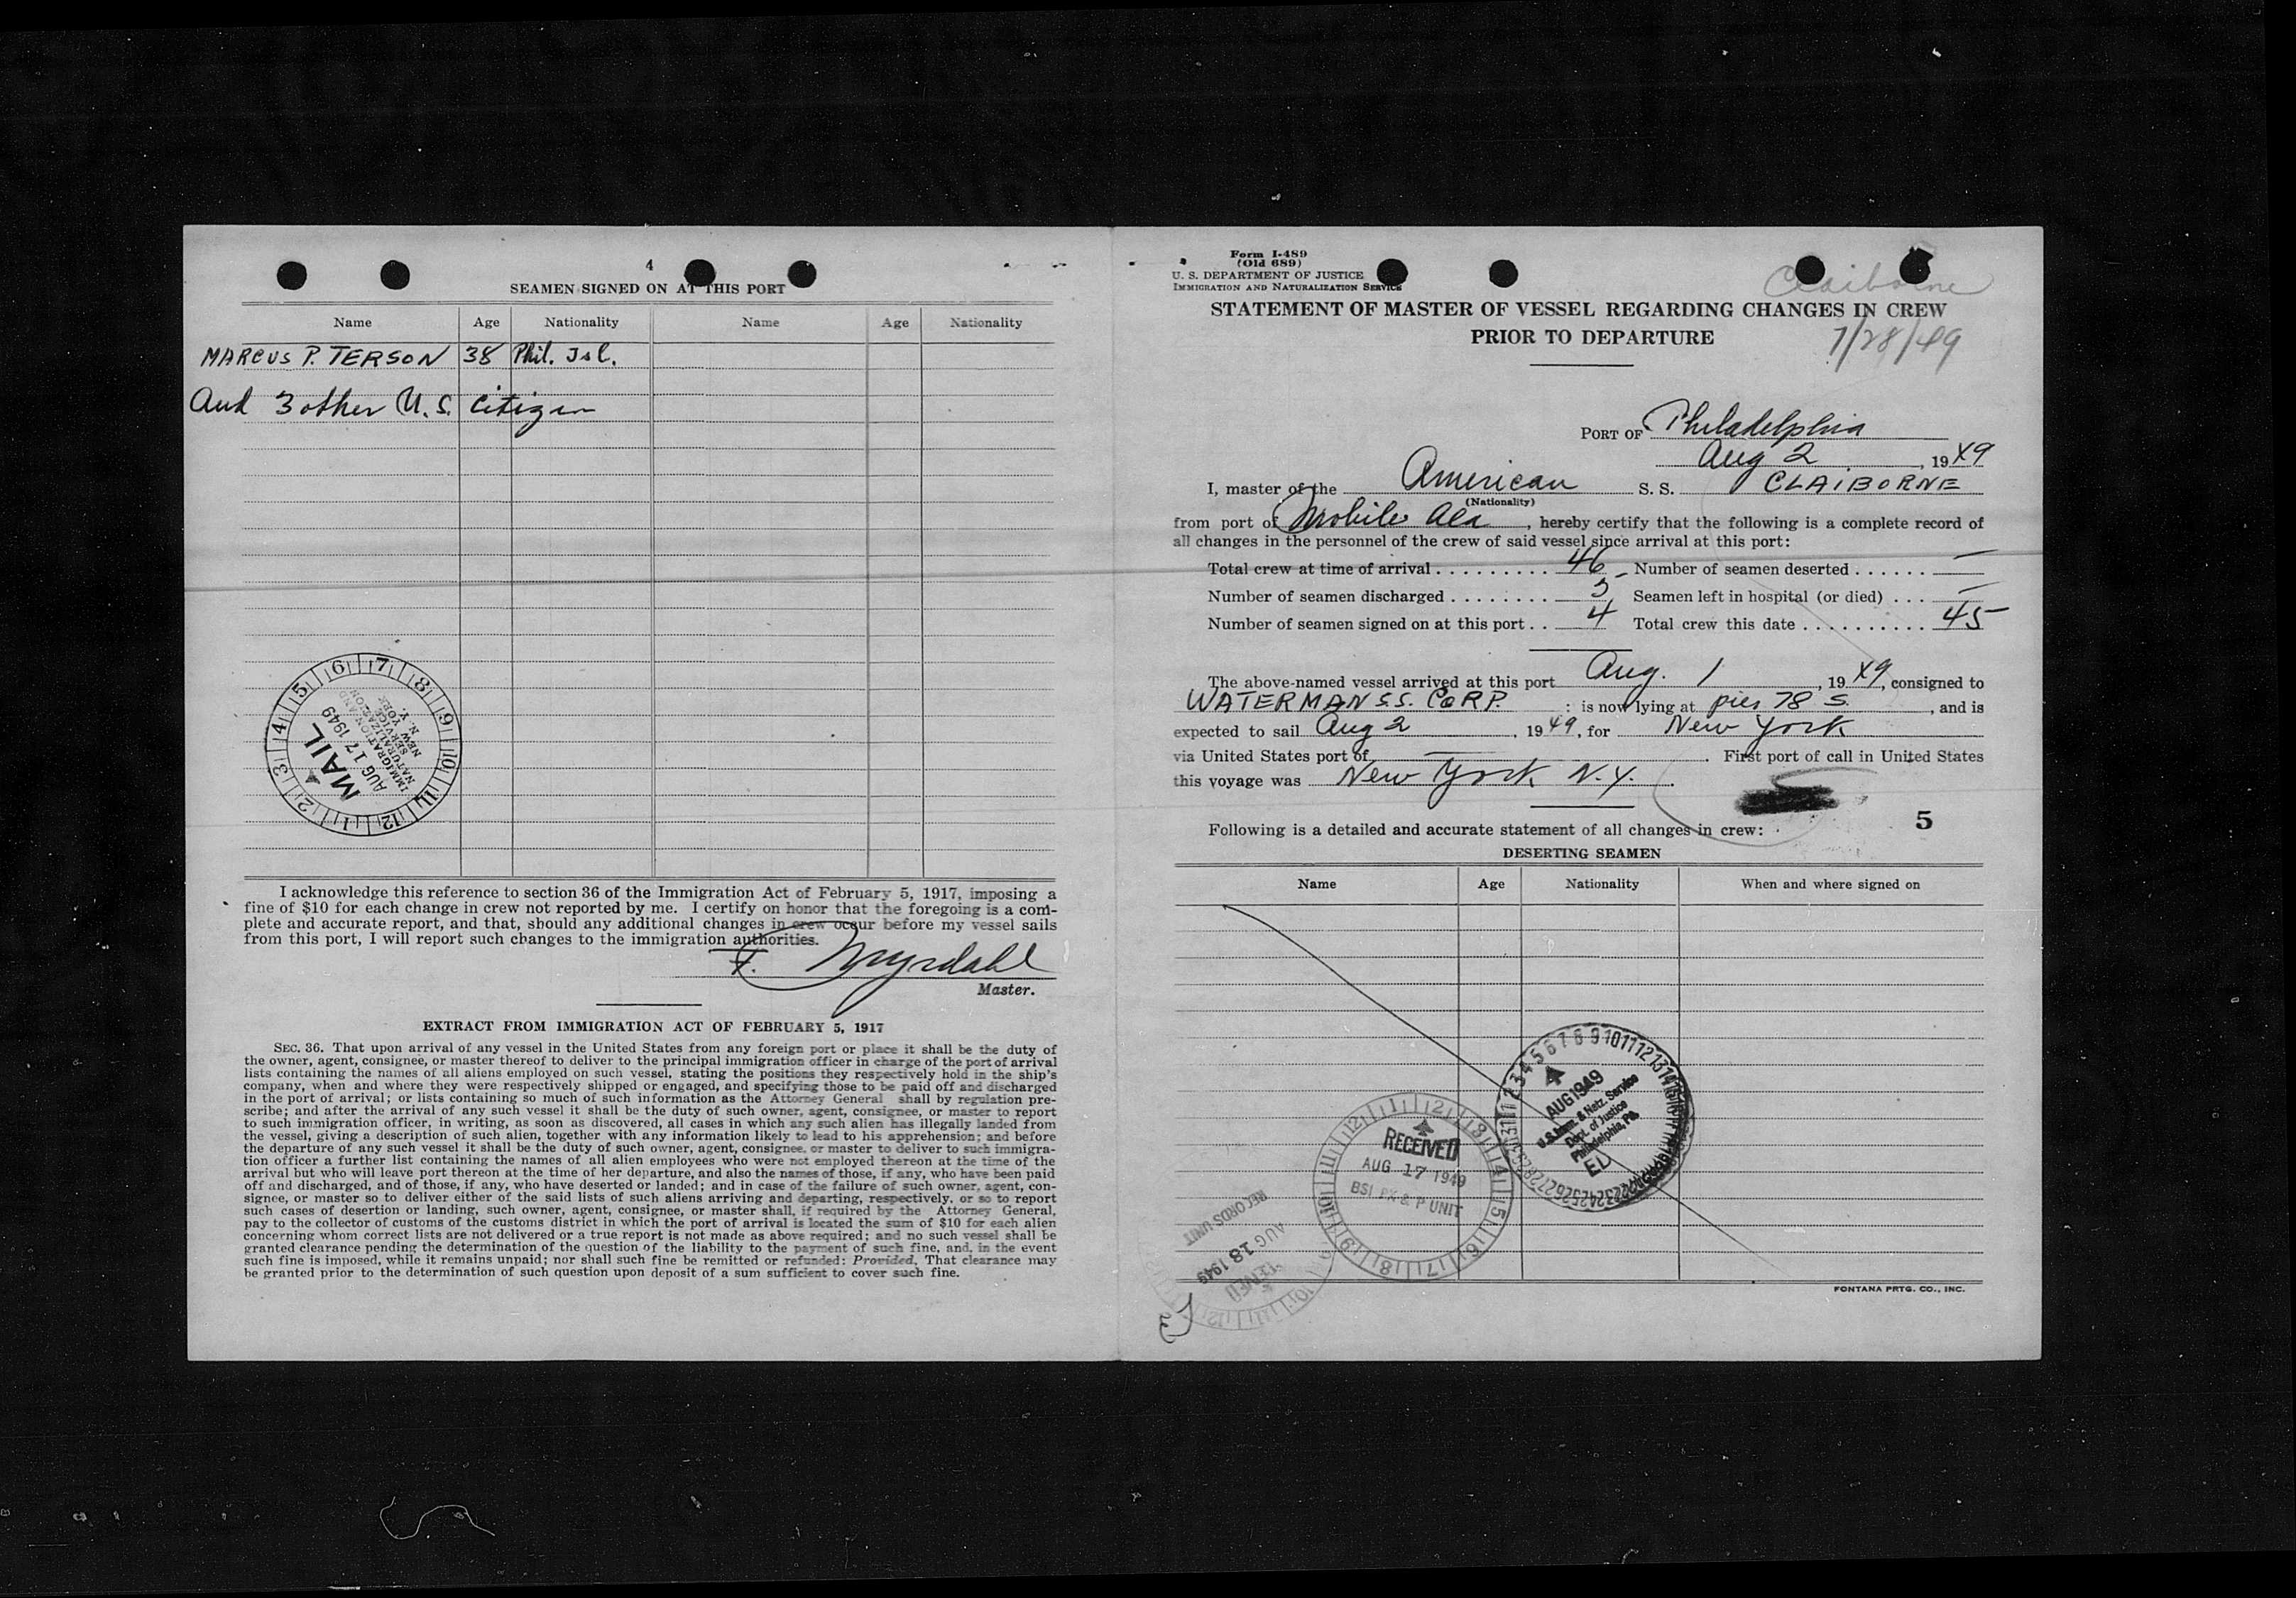 4
SEAMEN SIGNED ON AT THIS PORT
Name Age Nationality Name Age Nationality
MARCUS P. TERSON 38 Phil. Isl.
And 3 other U.S. Citizen
6 7 8 9 10 11 12 1 2 3 4 5
MAIL
AUG 17 1949
IMMIGRATION AND
NATURALIZATION
SERVICE
NEW YORK
N. Y.
I acknowledge this reference to section 36 of the Immigration Act of February 5, 1917, imposing a
fine of $10 for each change in crew not reported by me. I certify on honor that the foregoing is a com-
plete and accurate report, and that, should any additional changes in crew occur before my vessel sails
from this port, I will report such changes to the immigration authorities.
F. Myrdahl
Master.
EXTRACT FROM IMMIGRATION ACT OF FEBRUARY 5, 1917
SEC. 36. That upon arrival of any vessel in the United States from any foreign port or place it shall be the duty of
the owner, agent, consignee, or master thereof to deliver to the principal immigration officer in charge of the port of arrival
lists containing the names of all aliens employed on such vessel, stating the positions they respectively hold in the ship's
company, when and where they were respectively shipped or engaged, and specifying those to be paid off and discharged
in the port of arrival; or lists containing so much of such information as the Attorney General shall by regulation pre-
scribe; and after the arrival of any such vessel it shall be the duty of such owner, agent, consignee, or master to report
to such immigration officer, in writing, as soon as discovered, all cases in which any such alien has illegally landed from
the vessel, giving a description of such alien, together with any information likely to lead to his apprehension; and before
the departure of any such vessel it shall be the duty of such owner, agent, consignee, or master to deliver to such immigra-
tion officer a further list containing the names of all alien employees who were not employed thereon at the time of the
arrival but who will leave port thereon at the time of her departure, and also the names of those, if any, who have been paid
off and discharged, and of those, if any, who have deserted or landed; and in case of the failure of such owner, agent, con-
signee, or master so to deliver either of the said lists of such aliens arriving and departing, respectively, or so to report
such cases of desertion or landing, such owner, agent, consignee, or master shall, if required by the Attorney General,
pay to the collector of customs of the customs district in which the port of arrival is located the sum of $10 for each alien
concerning whom correct lists are not delivered or a true report is not made as above required; and no such vessel shall be
granted clearance pending the determination of the question of the liability to the payment of such fine, and, in the event
such fine is imposed, while it remains unpaid; nor shall such fine be remitted or refunded: Provided, That clearance may
be granted prior to the determination of such question upon deposit of a sum sufficient to cover such fine.
Form I-489
(Old 689)
U. S. DEPARTMENT OF JUSTICE
IMMIGRATION AND NATURALIZATION SERVICE
Claiborne
STATEMENT OF MASTER OF VESSEL REGARDING CHANGES IN CREW
PRIOR TO DEPARTURE
7/28/49
PORT OF Philadelphia
Aug 2, 1949
I, master of the American S. S. CLAIBORNE
(Nationality)
from port of Mobile Ala, hereby certify that the following is a complete record of
all changes in the personnel of the crew of said vessel since arrival at this port:
Total crew at time of arrival . . . . . . . . . . 46 Number of seamen deserted . . . . . . —
Number of seamen discharged . . . . . . . . 5 Seamen left in hospital (or died) . . . —
Number of seamen signed on at this port . . 4 Total crew this date . . . . . . . . . . . 45
The above-named vessel arrived at this port Aug. 1, 1949, consigned to
WATERMAN S.S. CORP. : is now lying at pier 78 S., and is
expected to sail Aug 2, 1949, for New York
via United States port of — . First port of call in United States
this voyage was New York N.Y.
5
Following is a detailed and accurate statement of all changes in crew:
DESERTING SEAMEN
Name Age Nationality When and where signed on
AUG 1949
U.S. Imm. & Natz. Service
Dept. of Justice
Philadelphia, Pa.
ED
RECEIVED
AUG 17 1949
BSI PX & P UNIT
RECORDS UNIT
AUG 18 1949
FONTANA PRTG. CO., INC.